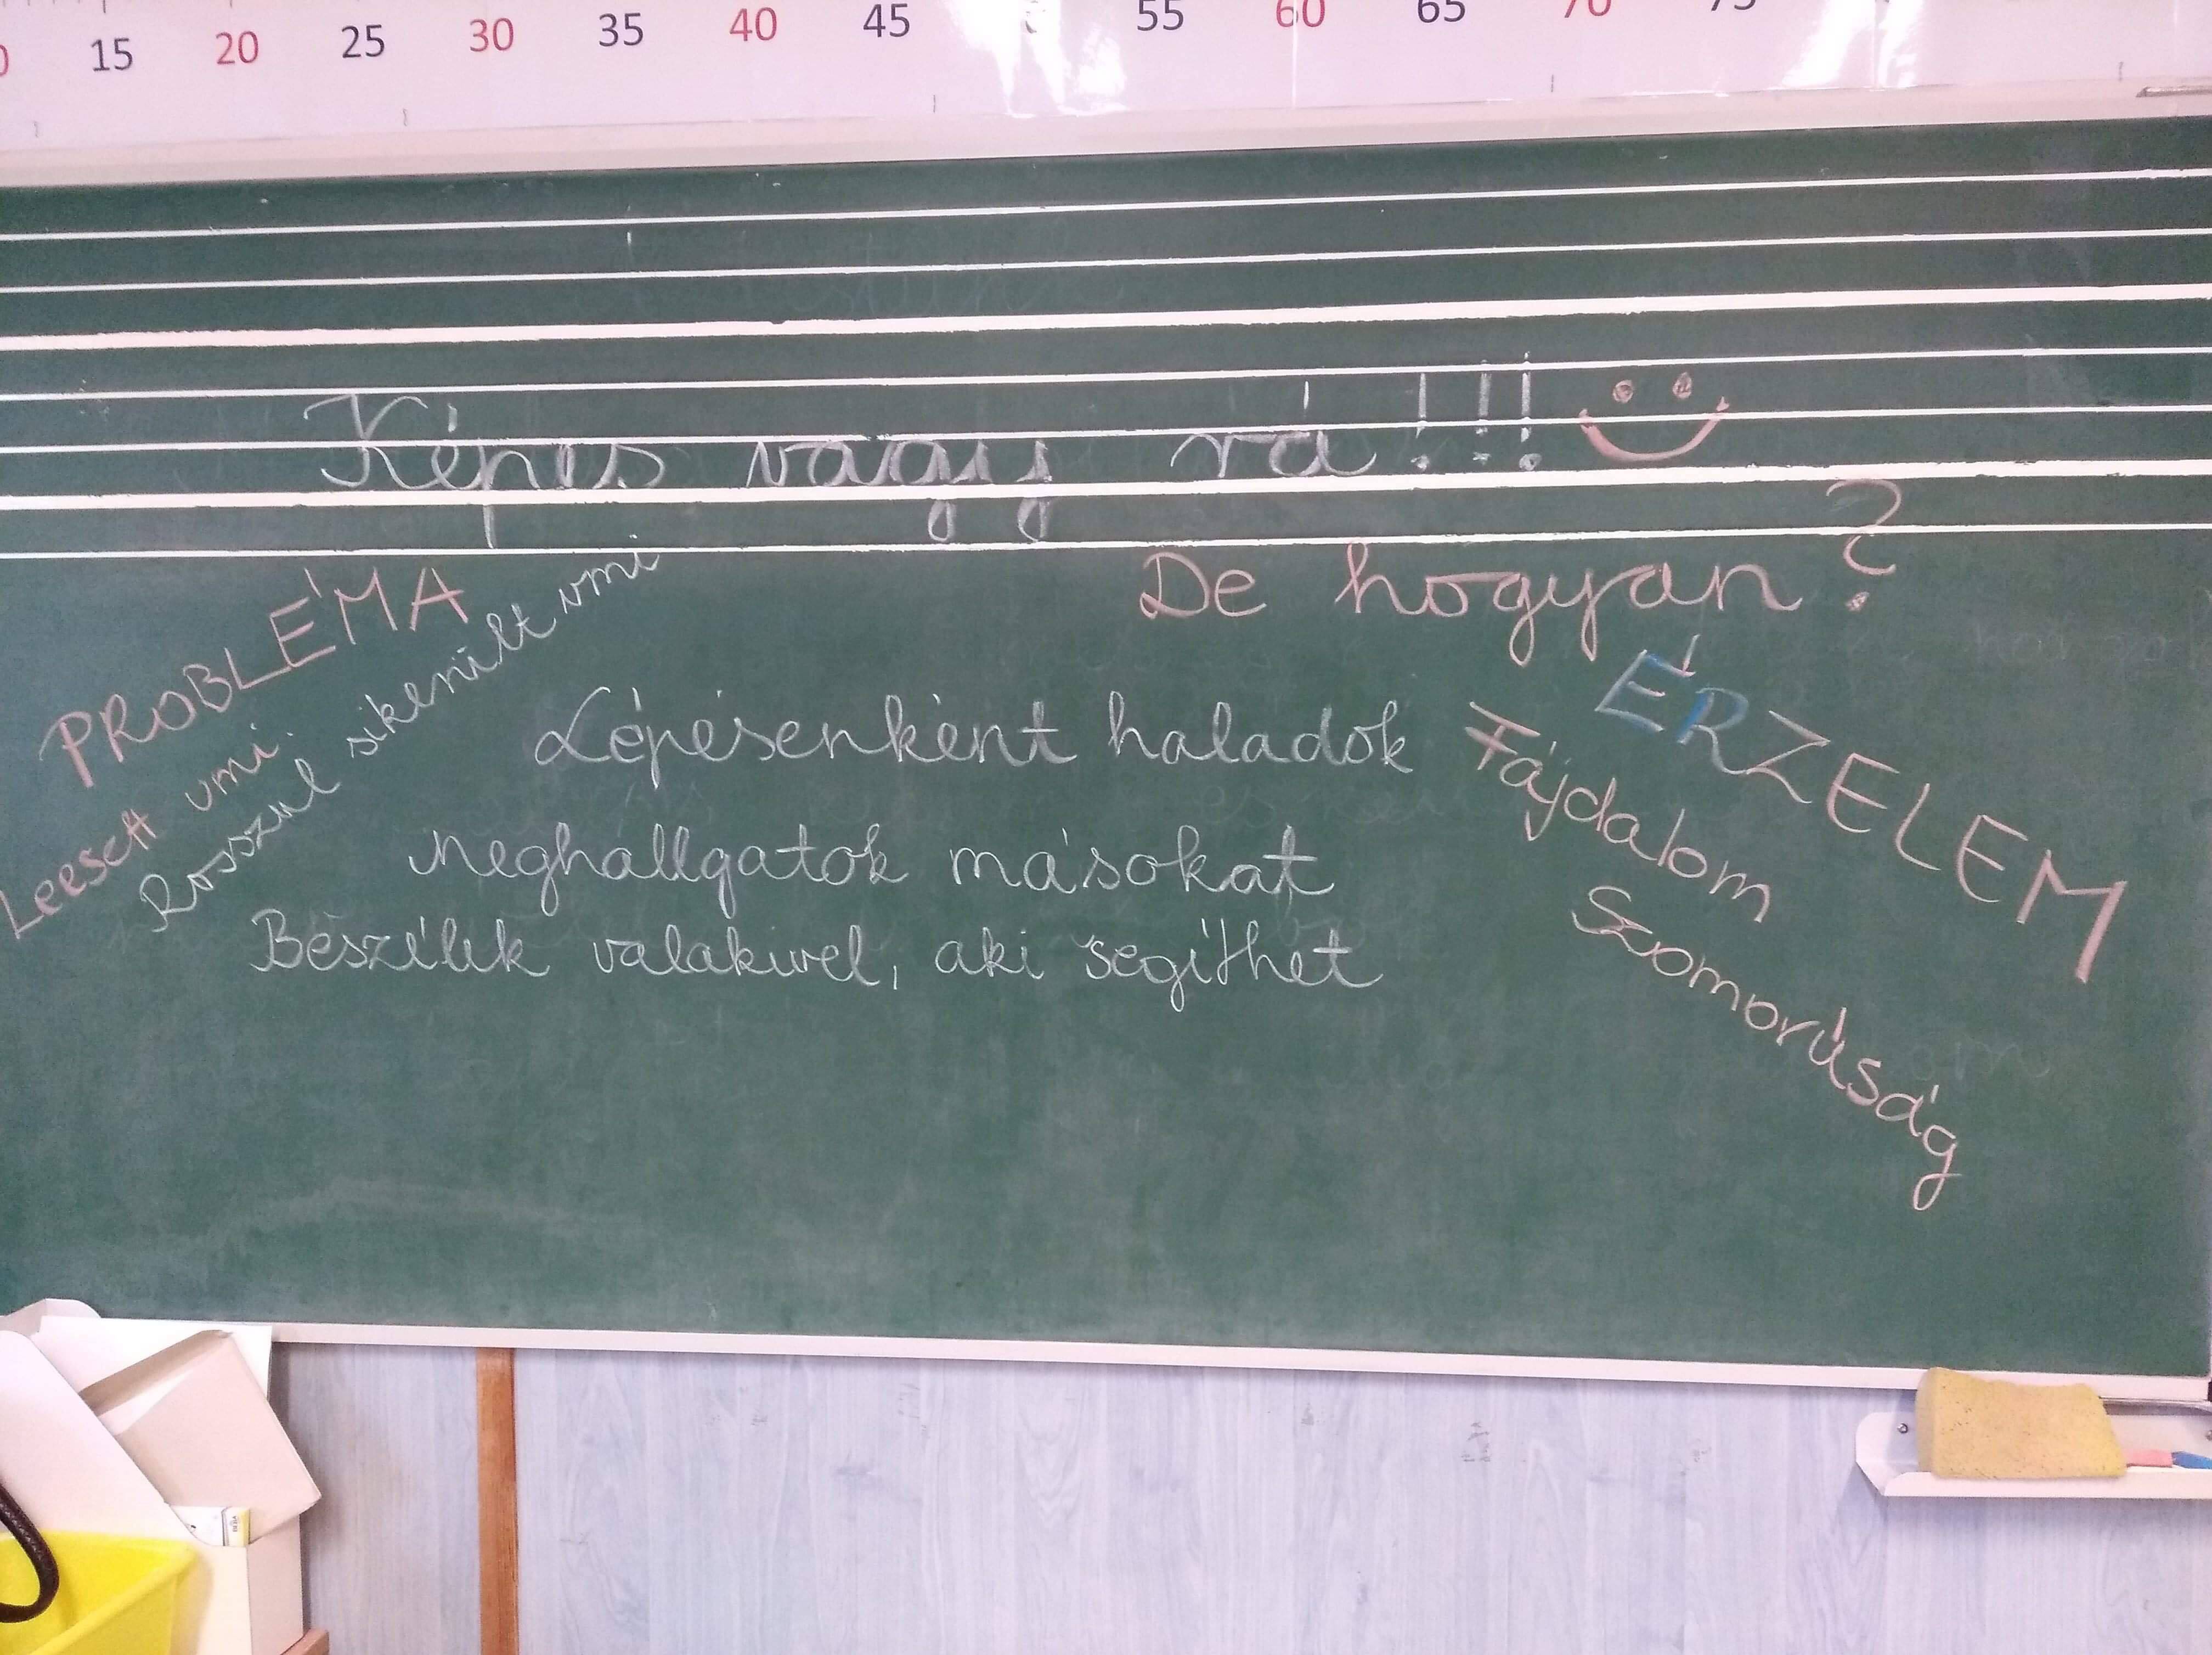 15 20 25 30 35 40 45 55 60 65 70 75
Képes vagy rá!!!
De hogyan?
PROBLÉMA
Leesett vmi.
Rosszul sikerült vmi
Lépésenként haladok
Meghallgatok másokat
Beszélek valakivel, aki segíthet
ÉRZELEM
Fájdalom
Szomorúság